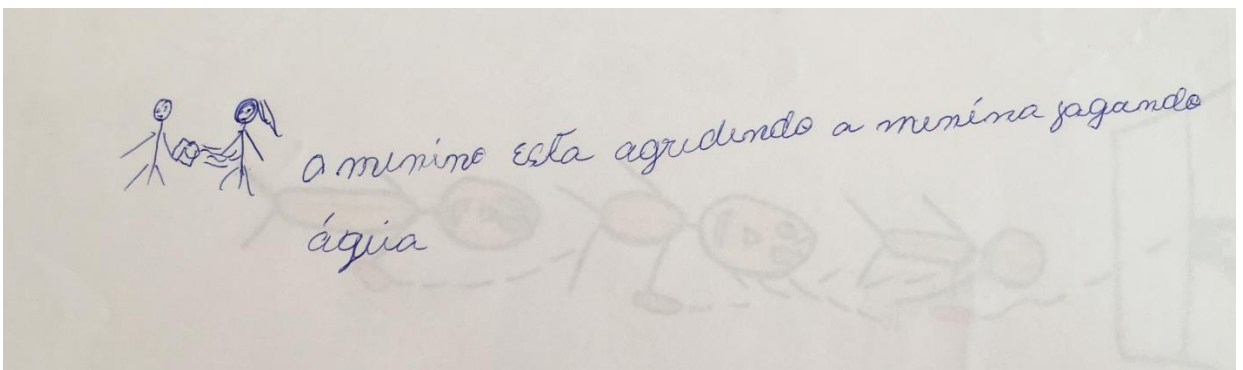 O menino está agridindo a menína jagando
água